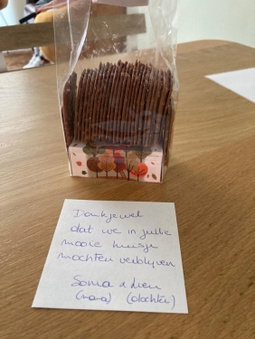 Dankjewel
dat we in jullie
mooie huisje
mochten verblijven
Sonia &
(mama) (dochter)